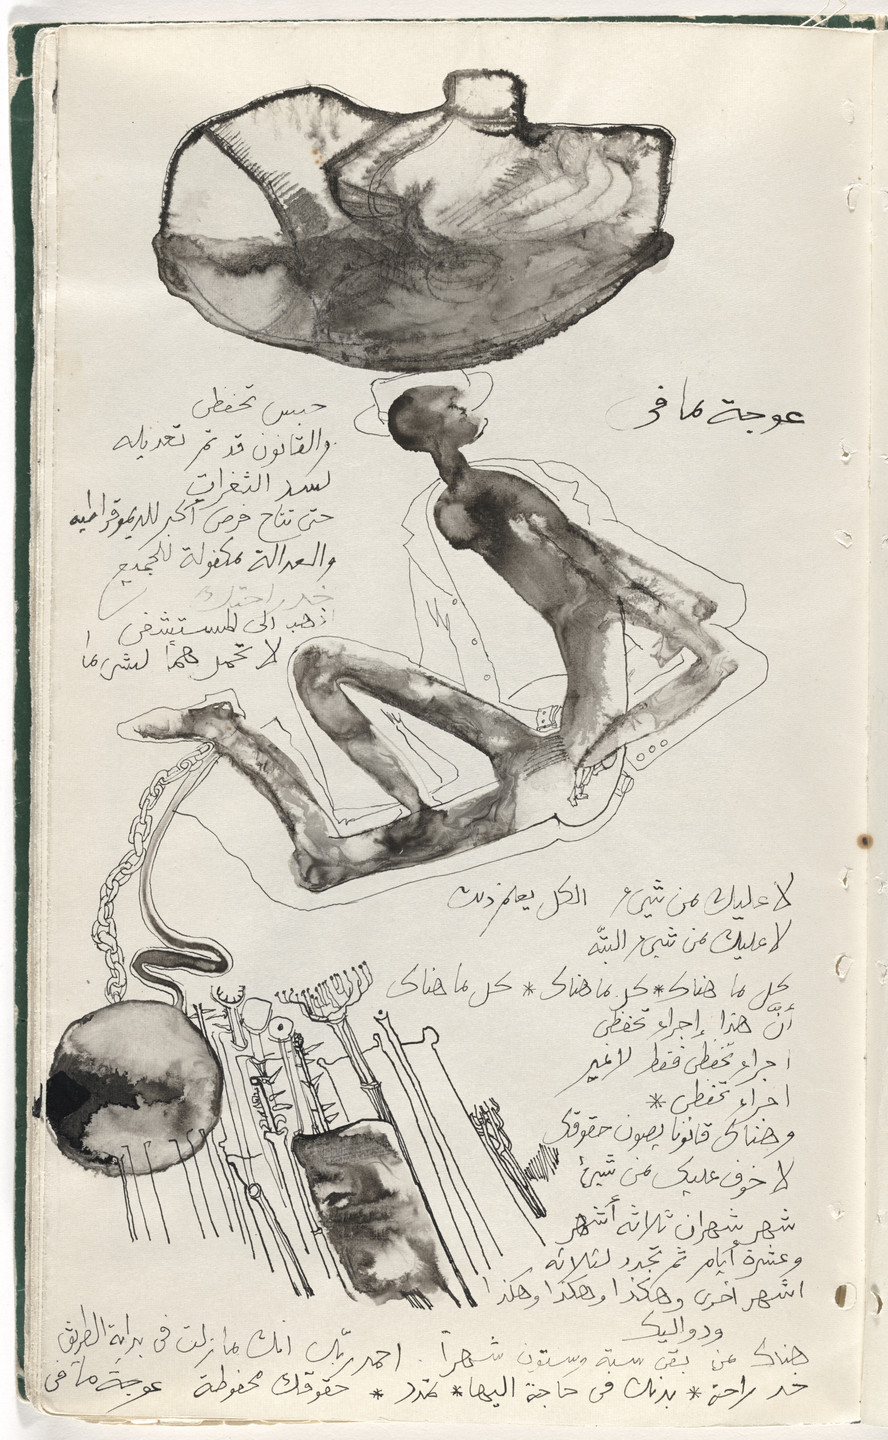 عوجة مافى
حبس تحفظى
والقانون قد تم تعديله
لسد الثغرات
حتى تتاح فرص أكبر للديموقراطيه
والعدالة مكفولة للجميع
خد راحتك
اذهب الى المستشفى
لا تحمل هماً لشىء ما
لا عليك من شيىء الكل يعلم ذلك
لا عليك من شيىء البتّه
كل ما هناك * كل ما هناك * كل ما هناك
أنّ هذا إجراء تحفظى
اجراء تحفظى فقط لا غير
اجراء تحفظى *
وهناك قانونا يصون حقوقك
لا خوف عليك من شيىء
شهر شهران ثلاثه أشهر
وعشرة أيام ثم تجدد لثلاثه
اشهر أخرى وهكذا وهكذا وهكذا
ودواليك
هناك من بقى ستة وستون شهراً . احمد ربّك انك مازلت فى بداية الطريق
خد راحة * بدنك فى حاجة اليها * تمدد * حقوقك محفوظة عوجة مافى